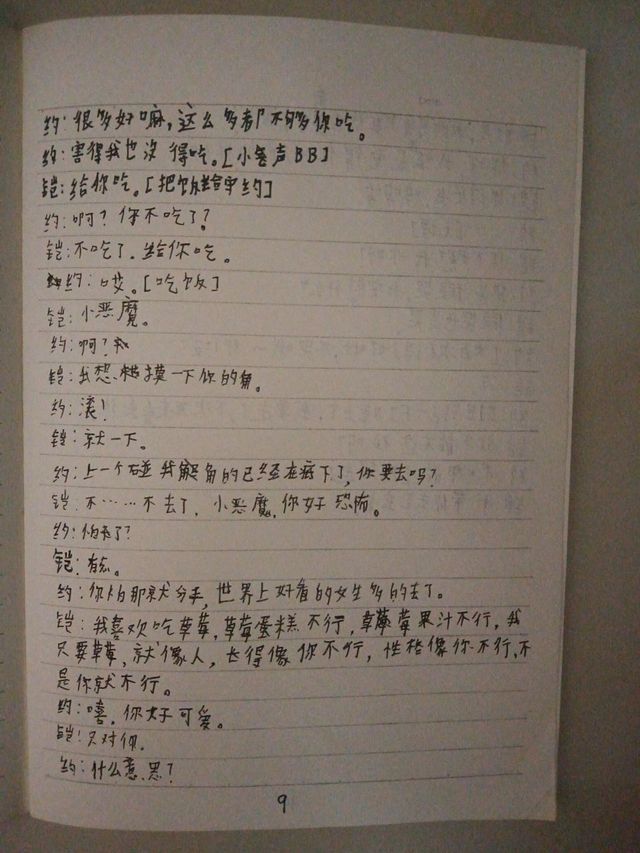 约：很多好嘛，这么多都不够你吃。
约：害得我也没得吃。[小声BB]
铠：给你吃。[把饭给约]
约：啊？你不吃了？
铠：不吃了，给你吃。
约：哎。[吃饭]
铠：小恶魔。
约：啊？
铠：我想摸一下你的角。
约：滚！
铠：就一下。
约：上一个碰我角的已经在底下了，你要去吗？
铠：不……不去了，小恶魔，你好恐怖。
约：怕了？
铠：有点。
约：你怕那就分手，世界上好看的女生多的去了。
铠：我喜欢吃草莓，草莓蛋糕不行，草莓果汁不行，我
只要草莓，就像人，长得像你不行，性格像你不行，不
是你就不行。
约：嘻，你好可爱。
铠：只对你。
约：什么意思？
9